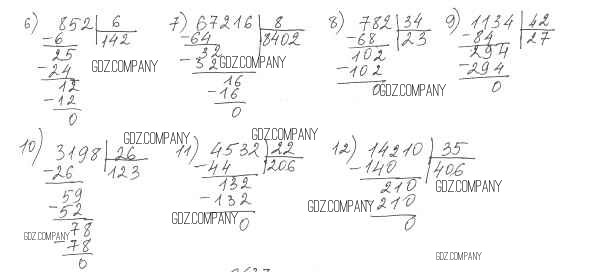 6) 852 | 6
-6 | 142
25
-24
12
-12
0
GDZ.COMPANY
7) 67216 | 8
-64 | 8402
32
-32
16
-16
0
GDZ.COMPANY
8) 782 | 34
-68 | 23
102
-102
0
GDZ.COMPANY
9) 1134 | 42
-84 | 27
294
-294
0
10) 3198 | 26
-26 | 123
59
-52
78
-78
0
GDZ.COMPANY
GDZ.COMPANY
11) 4532 | 22
-44 | 206
132
-132
0
GDZ.COMPANY
GDZ.COMPANY
12) 14210 | 35
-140 | 406
210
-210
0
GDZ.COMPANY
GDZ.COMPANY
GDZ.COMPANY